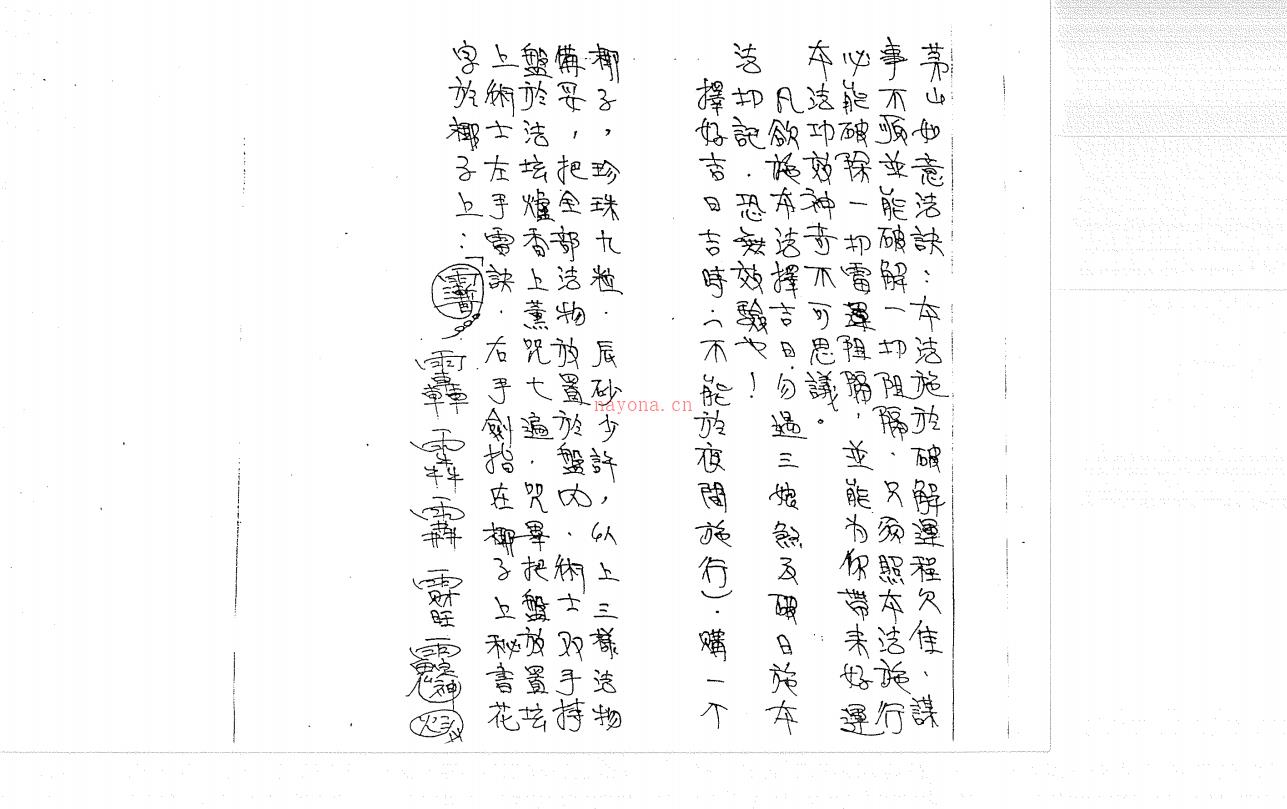 茅山如意法訣：本法施於破解運程欠佳、謀
事不順並能破解一切阻隔．只須照本法施行
必能破除一切雷運阻隔，並能为你帶来好運
本法功效神奇不可思議。
凡欲施本法擇吉日勿過三娘煞及破日施本
法切記．恐無效驗也！
擇好吉日吉時．（不能於夜間施行）．購一个
椰子，珍珠九粒．辰砂少許，以上三樣法物
備妥，把全部法物放置於盤內．術士双手持
盤於法坛爐香上薰咒七遍．咒畢把盤放置坛
上術士左手雷訣．右手劍指在椰子上秘書花
字於椰子上：「
nayona.cn